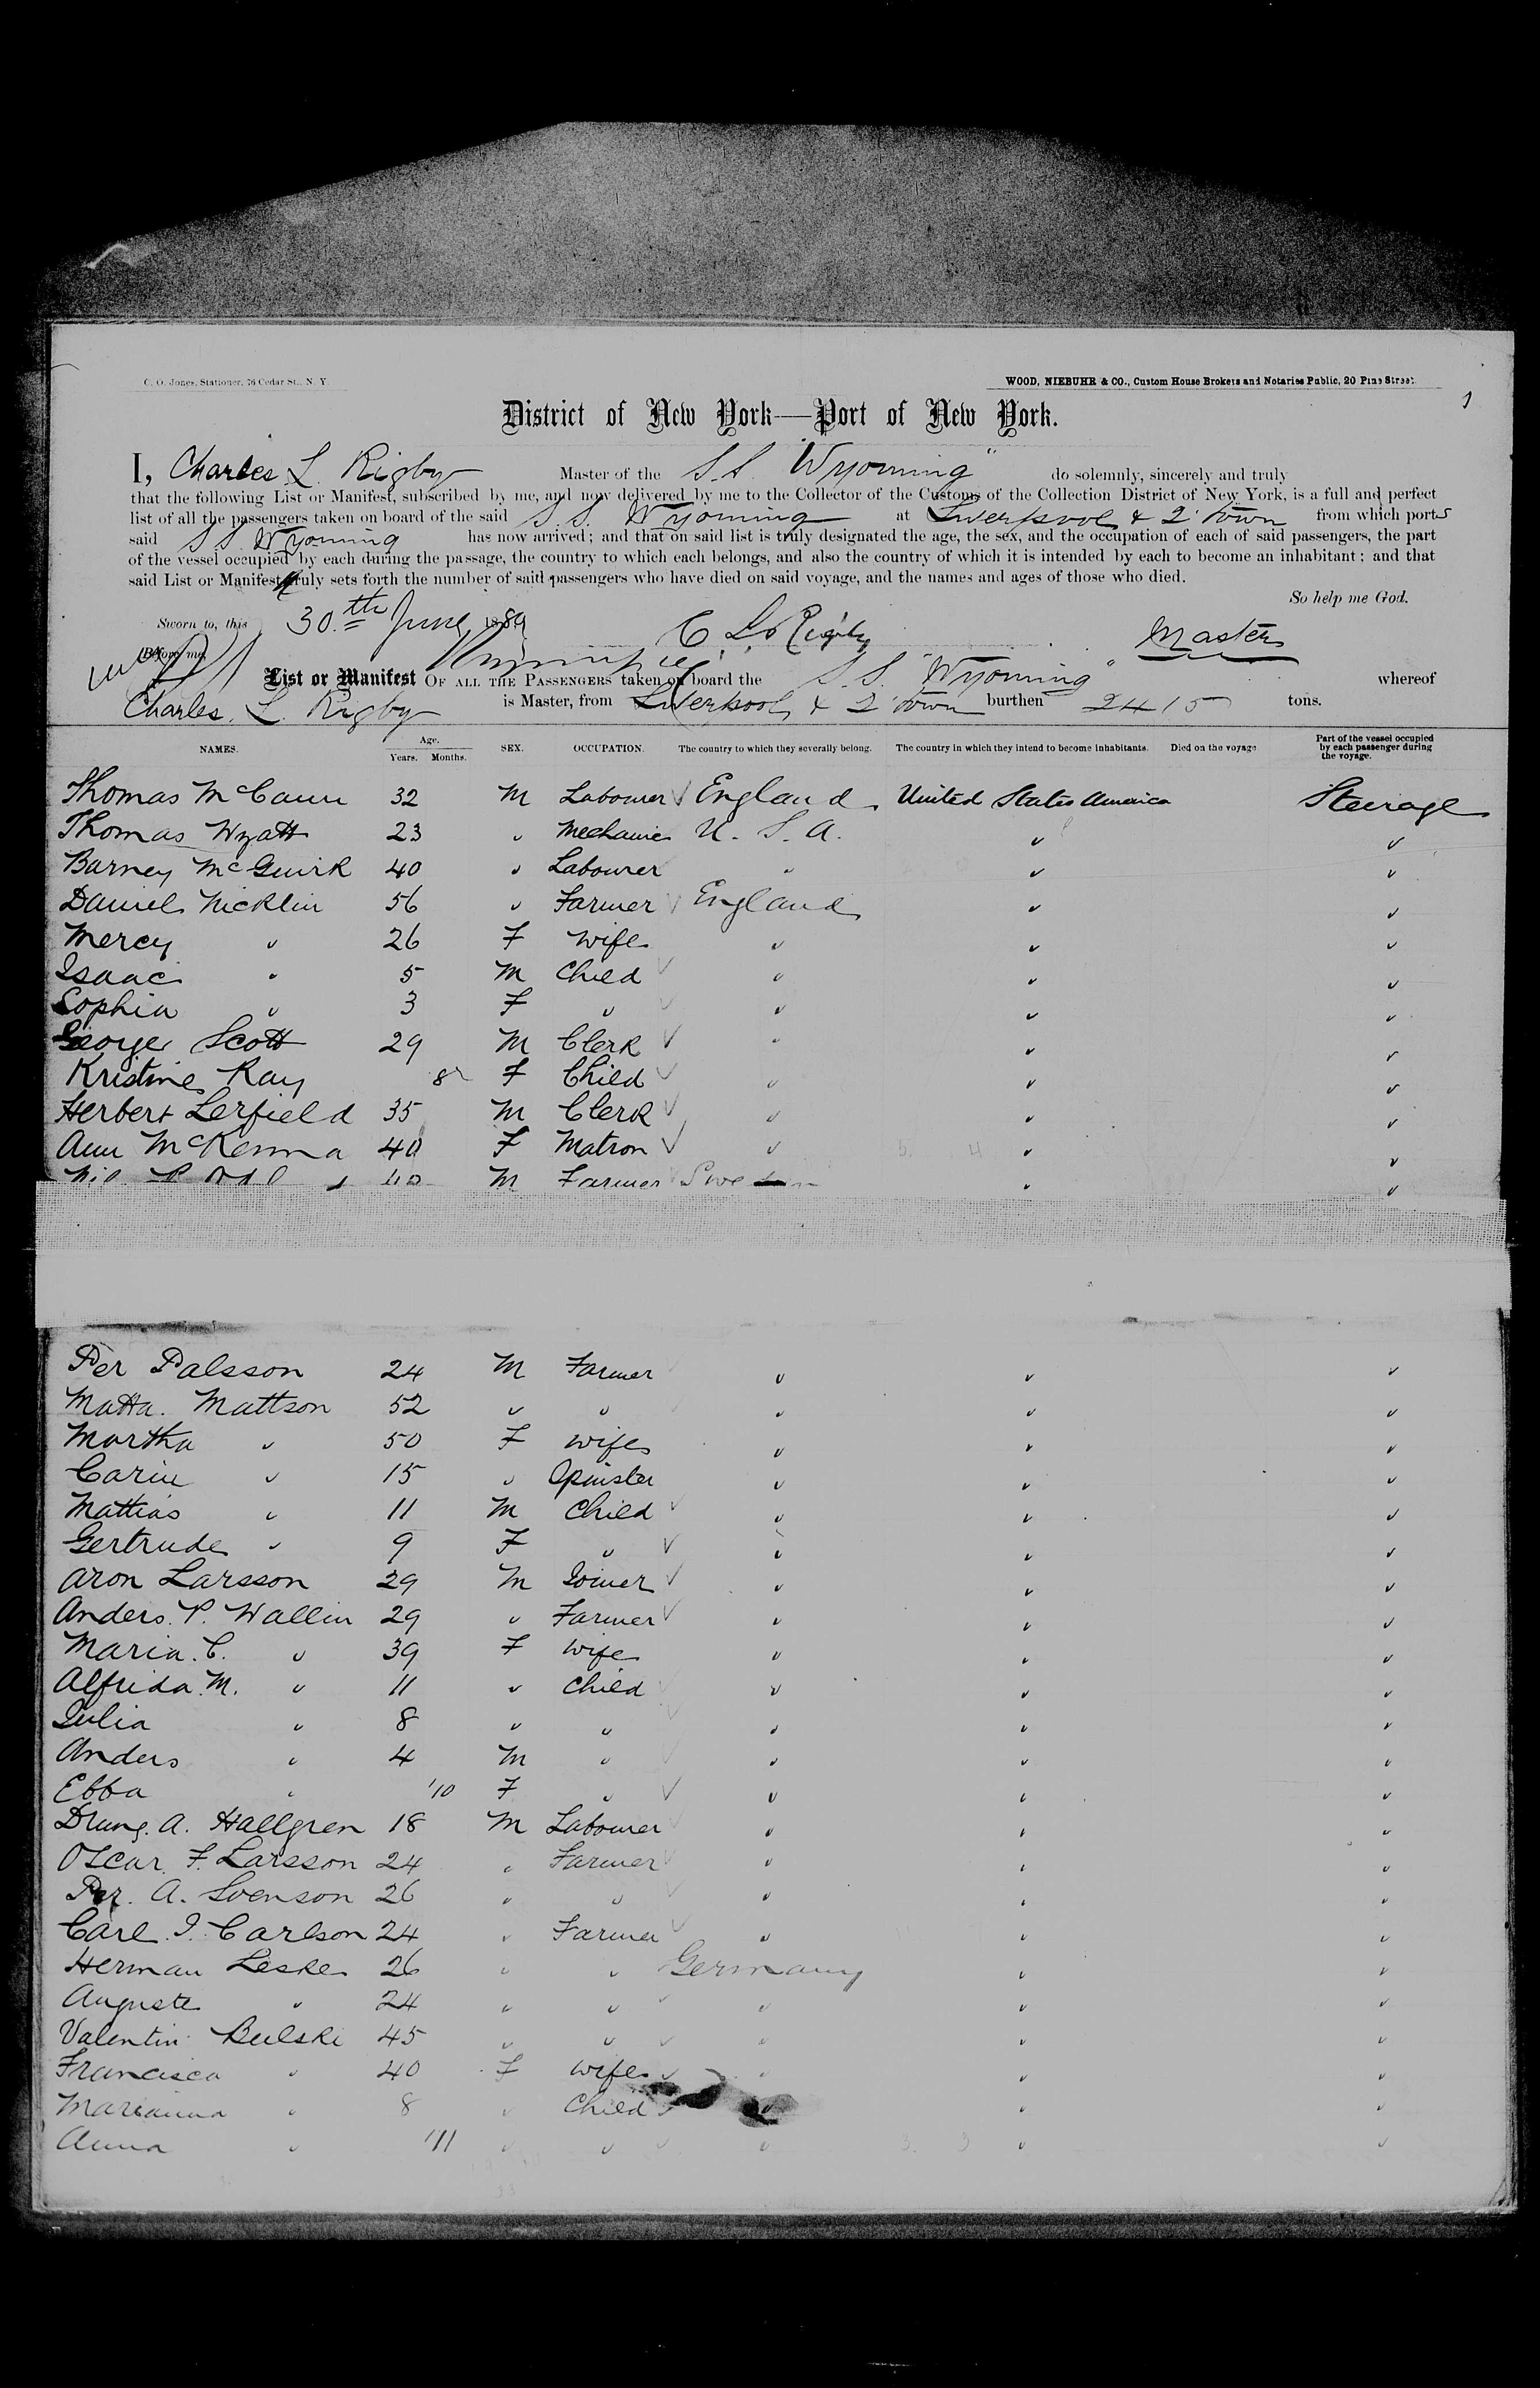 C. O. Jones, Stationer, 76 Cedar St., N. Y.
WOOD, NIEBUHR & CO., Custom House Brokers and Notaries Public, 20 Pine Street.
1
District of New York—Port of New York.
I, Charles L. Rigby Master of the S.S. "Wyoming" do solemnly, sincerely and truly
that the following List or Manifest, subscribed by me, and now delivered by me to the Collector of the Customs of the Collection District of New York, is a full and perfect
list of all the passengers taken on board of the said S. S. Wyoming at Liverpool & Q'town from which ports
said S S Wyoming has now arrived; and that on said list is truly designated the age, the sex, and the occupation of each of said passengers, the part
of the vessel occupied by each during the passage, the country to which each belongs, and also the country of which it is intended by each to become an inhabitant; and that
said List or Manifest truly sets forth the number of said passengers who have died on said voyage, and the names and ages of those who died.
So help me God.
Sworn to, this 30.th June 188 C L Rigby Master
Before me,
List or Manifest OF ALL THE PASSENGERS taken on board the S. S. "Wyoming" whereof
Charles. L. Rigby is Master, from Liverpool & Q'town burthen 2415 tons.
NAMES. Age. Years. Months. SEX. OCCUPATION. The country to which they severally belong. The country in which they intend to become inhabitants. Died on the voyage Part of the vessel occupied by each passenger during the voyage.
Thomas McCann 32 M Labourer England United States America Steerage
Thomas Wyatt 23 " Mechanic U. S. A. " "
Barney McGuirk 40 " Labourer " " "
Daniel Nicklin 56 " Farmer England " "
Mercy " 26 F Wife " " "
Isaac " 5 M Child " " "
Sophia " 3 F " " " "
George Scott 29 M Clerk " " "
Kristine Ray 8 F Child " " "
Herbert Lerfield 35 M Clerk " " "
Ann McKenna 40 F Matron " " "
40 M Farmer Sweden " "
Per Palsson 24 M Farmer " " "
Matta. Mattson 52 " " " " "
Martha " 50 F Wife " " "
Carin " 15 " Spinster " " "
Mattias " 11 M Child " " "
Gertrude " 9 F " " " "
Aron Larsson 29 M Joiner " " "
Anders. P. Wallin 29 " Farmer " " "
Maria. C. " 39 F Wife " " "
Alfrida. M. " 11 " Child " " "
Julia " 8 " " " " "
Anders " 4 M " " " "
Ebba " '10 F " " " "
A. Hallgren 18 M Labourer " " "
Oscar. F. Larsson 24 " Farmer " " "
Per. A. Svenson 26 " " " " "
Carl. J. Carlson 24 " Farmer " " "
Herman Leske 26 " " Germany " "
Auguste " 24 " " " " "
Valentin Bulski 45 " " " " "
Francisca " 40 F Wife " " "
Marianna " 8 " Child " " "
Anna " '11 " " " " "